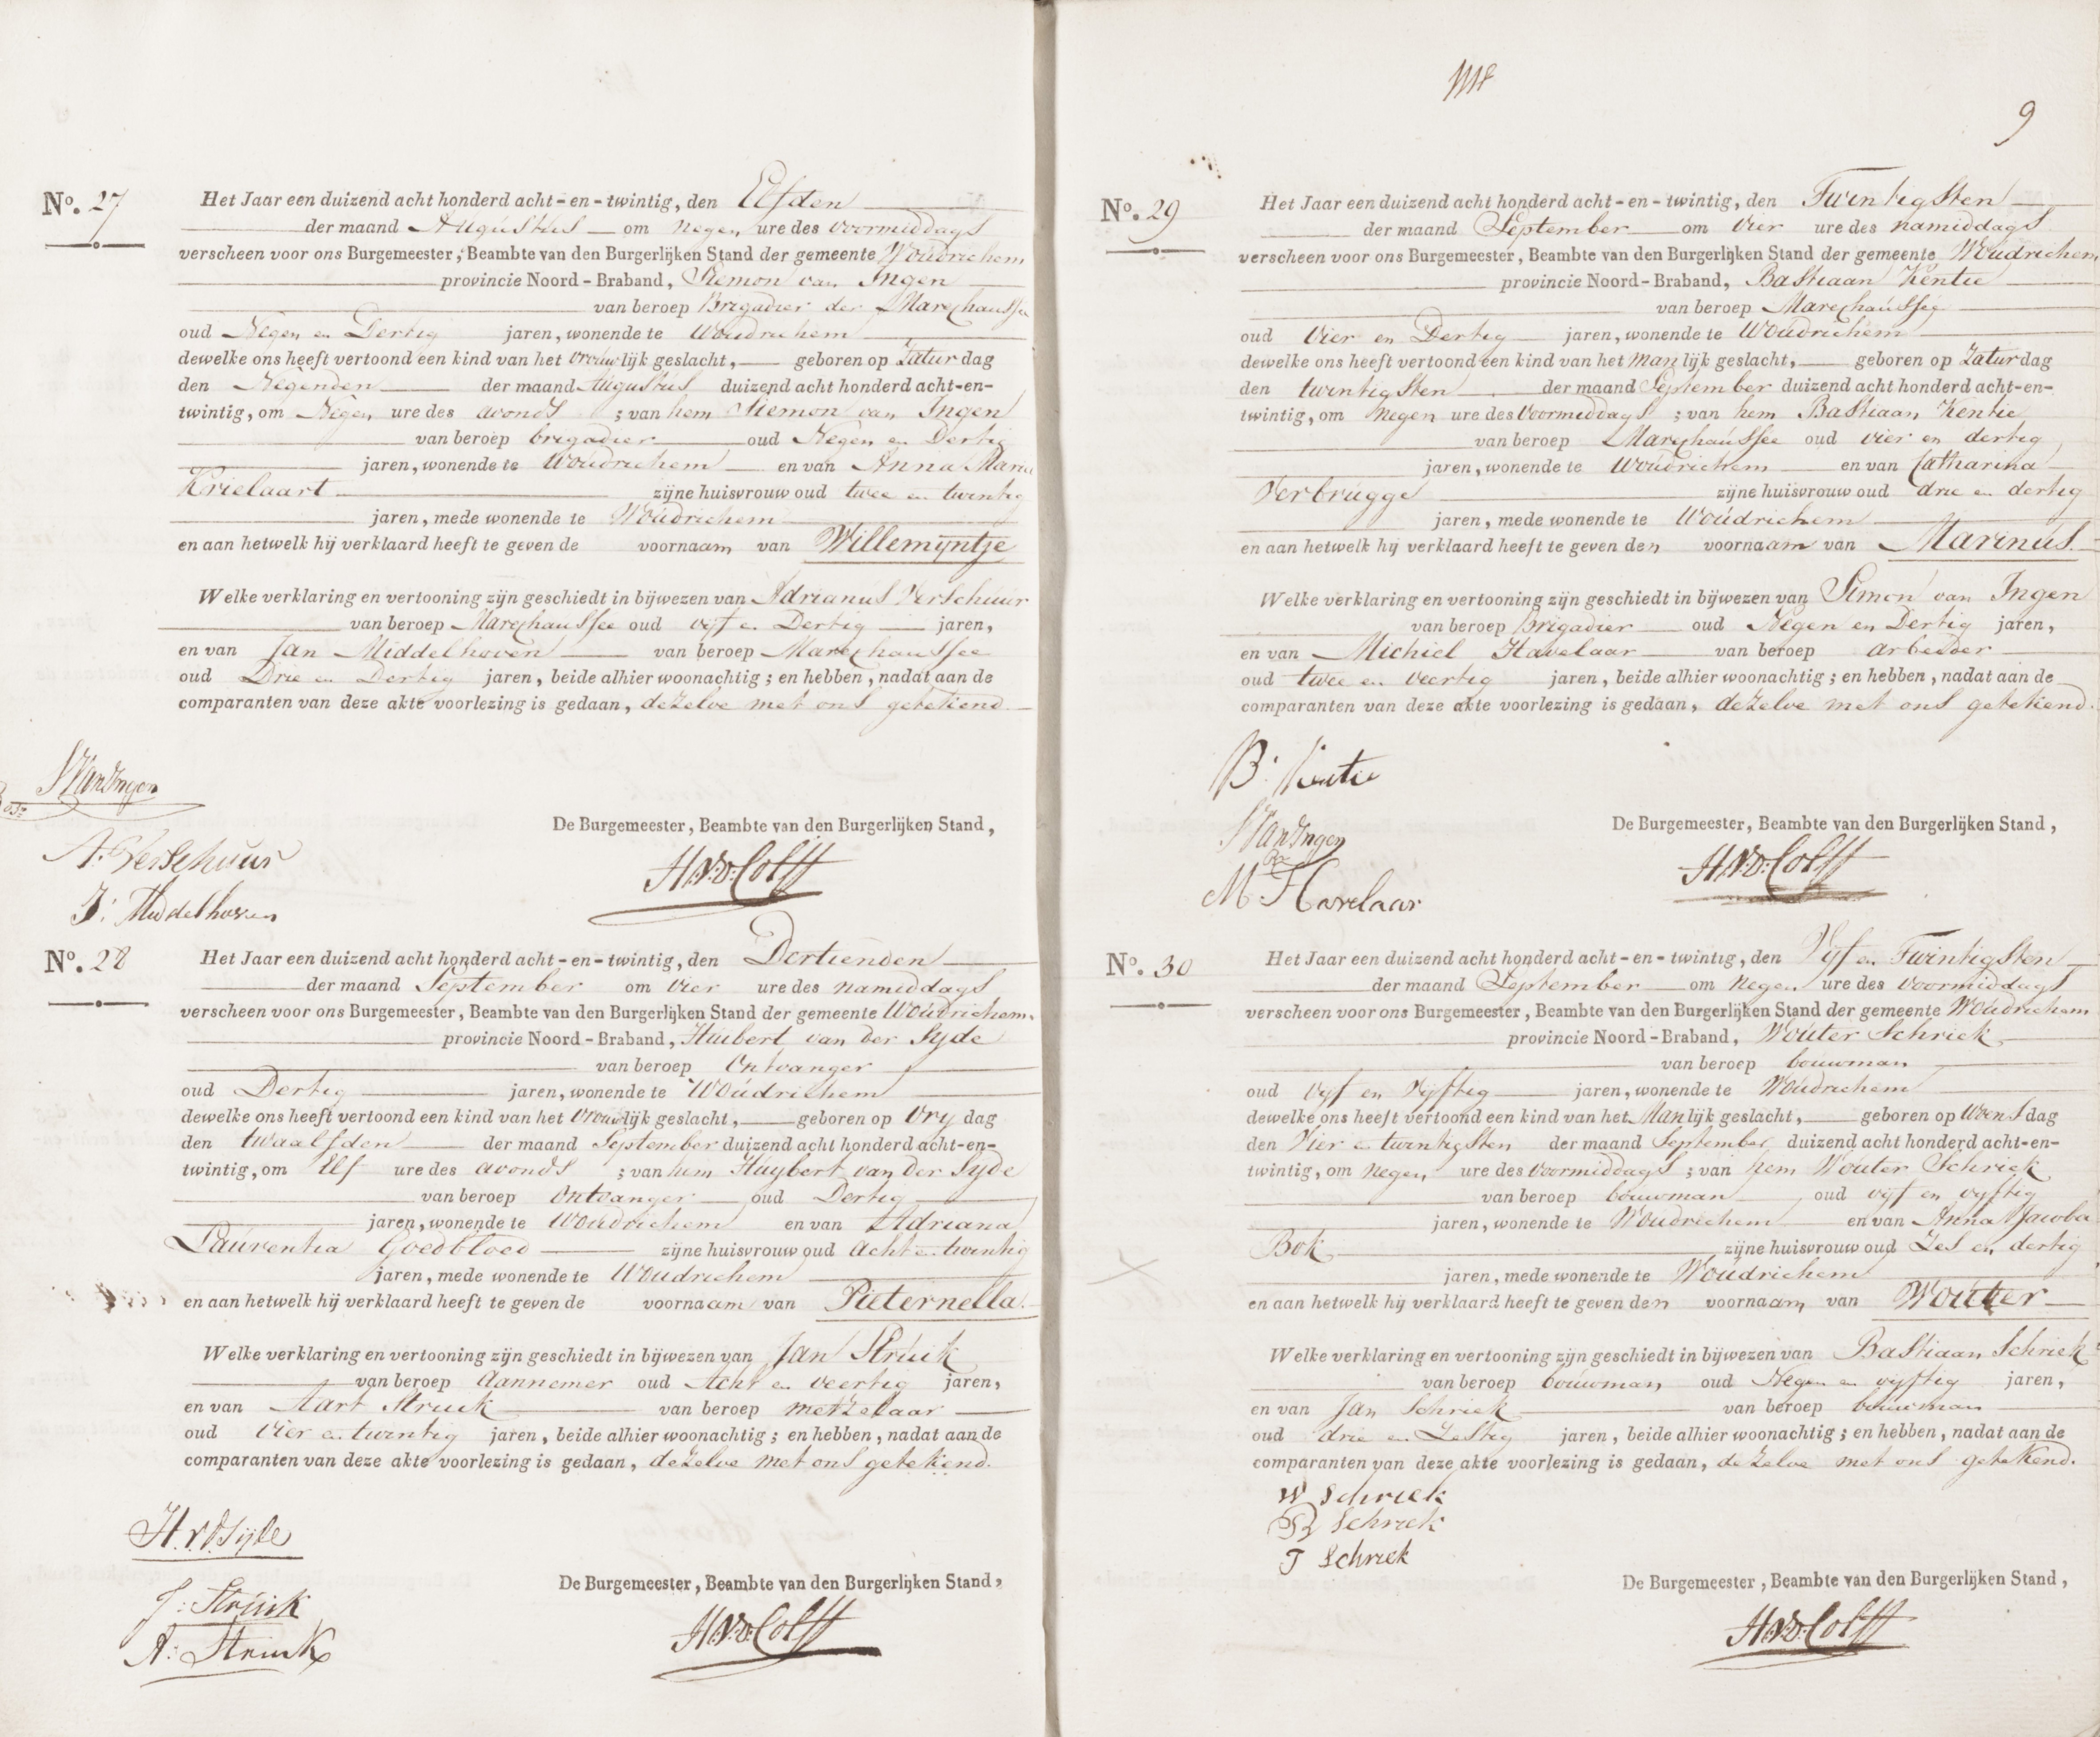 No. 27
Het Jaar een duizend acht honderd acht-en-twintig, den Elfden
der maand Augustus om Negen ure des voormiddags
verscheen voor ons Burgemeester, Beambte van den Burgerlijken Stand der gemeente Woudrichem
provincie Noord-Braband, Siemon van Ingen
van beroep Brigadier der Marechaussee
oud Negen en Dertig jaren, wonende te Woudrichem
dewelke ons heeft vertoond een kind van het vrouwlijk geslacht, geboren op Zaturdag
den Negenden der maand Augustus duizend acht honderd acht-en-
twintig, om Negen ure des avonds ; van hem Siemon van Ingen
van beroep brigadier oud Negen en Dertig
jaren, wonende te Woudrichem en van Anna Maria
Krielaart zijne huisvrouw oud twee en twintig
jaren, mede wonende te Woudrichem
en aan hetwelk hij verklaard heeft te geven de voornaam van Willemijntje
Welke verklaring en vertooning zijn geschiedt in bijwezen van Adrianus Verschuur
van beroep Marechaussee oud vijf en Dertig jaren,
en van Jan Middelhoven van beroep Marechaussee
oud Drie en Dertig jaren, beide alhier woonachtig; en hebben, nadat aan de
comparanten van deze akte voorlezing is gedaan, dezelve met ons getekend
S Van Ingen
A: Verschuur
J: Middelhoven
De Burgemeester, Beambte van den Burgerlijken Stand,
H.v.d. Colff
No. 28
Het Jaar een duizend acht honderd acht-en-twintig, den Dertienden
der maand September om vier ure des namiddags
verscheen voor ons Burgemeester, Beambte van den Burgerlijken Stand der gemeente Woudrichem.
provincie Noord-Braband, Huibert van der Syde
van beroep Ontvanger
oud Dertig jaren, wonende te Woudrichem
dewelke ons heeft vertoond een kind van het vrouwlijk geslacht, geboren op Vrydag
den twaalfden der maand September duizend acht honderd acht-en-
twintig, om Elf ure des avonds ; van hem Huybert van der Syde
van beroep Ontvanger oud Dertig
jaren, wonende te Woudrichem en van Adriana
Laurentia Goedbloed zijne huisvrouw oud Acht en twintig
jaren, mede wonende te Woudrichem
en aan hetwelk hij verklaard heeft te geven de voornaam van Pieternella.
Welke verklaring en vertooning zijn geschiedt in bijwezen van Jan Struik
van beroep Aannemer oud Acht en veertig jaren,
en van Aart Struik van beroep metzelaar
oud vier en twintig jaren, beide alhier woonachtig; en hebben, nadat aan de
comparanten van deze akte voorlezing is gedaan, dezelve met ons getekend.
H.v.d Syde
J: Struik
A: Struik
De Burgemeester, Beambte van den Burgerlijken Stand,
H.v.d. Colff
9
No. 29
Het Jaar een duizend acht honderd acht-en-twintig, den Twintigsten
der maand September om vier ure des namiddags
verscheen voor ons Burgemeester, Beambte van den Burgerlijken Stand der gemeente Woudrichem
provincie Noord-Braband, Bastiaan Kentie
van beroep Marechaussee
oud Vier en Dertig jaren, wonende te Woudrichem
dewelke ons heeft vertoond een kind van het manlijk geslacht, geboren op Zaturdag
den twintigsten der maand September duizend acht honderd acht-en-
twintig, om negen ure des voormiddags ; van hem Bastiaan Kentie
van beroep Marechaussee oud vier en dertig
jaren, wonende te Woudrichem en van Catharina
Verbrugge zijne huisvrouw oud drie en dertig
jaren, mede wonende te Woudrichem
en aan hetwelk hij verklaard heeft te geven den voornaam van Marinus.
Welke verklaring en vertooning zijn geschiedt in bijwezen van Simon van Ingen
van beroep brigadier oud Negen en Dertig jaren,
en van Michiel Havelaar van beroep arbeider
oud twee en veertig jaren, beide alhier woonachtig; en hebben, nadat aan de
comparanten van deze akte voorlezing is gedaan, dezelve met ons getekend.
B: Kentie
S Van Ingen
M: Havelaar
De Burgemeester, Beambte van den Burgerlijken Stand,
H.v.d. Colff
No. 30
Het Jaar een duizend acht honderd acht-en-twintig, den Vyf en Twintigsten
der maand September om Negen ure des voormiddags
verscheen voor ons Burgemeester, Beambte van den Burgerlijken Stand der gemeente Woudrichem
provincie Noord-Braband, Wouter Schriek
van beroep bouwman
oud vyf en vyftig jaren, wonende te Woudrichem
dewelke ons heeft vertoond een kind van het Manlijk geslacht, geboren op Woensdag
den Vier en twintigsten der maand September duizend acht honderd acht-en-
twintig, om negen ure des voormiddags ; van hem Wouter Schriek
van beroep bouwman oud vyf en vyftig
jaren, wonende te Woudrichem en van Anna Jacoba
Bok zijne huisvrouw oud Zes en dertig
jaren, mede wonende te Woudrichem
en aan hetwelk hij verklaard heeft te geven den voornaam van Wouter
Welke verklaring en vertooning zijn geschiedt in bijwezen van Bastiaan Schriek
van beroep bouwman oud Negen en vyftig jaren,
en van Jan Schriek van beroep bouwman
oud drie en Zestig jaren, beide alhier woonachtig; en hebben, nadat aan de
comparanten van deze akte voorlezing is gedaan, dezelve met ons getekend.
W Schriek
B Schriek
J Schriek
De Burgemeester, Beambte van den Burgerlijken Stand,
H.v.d. Colff